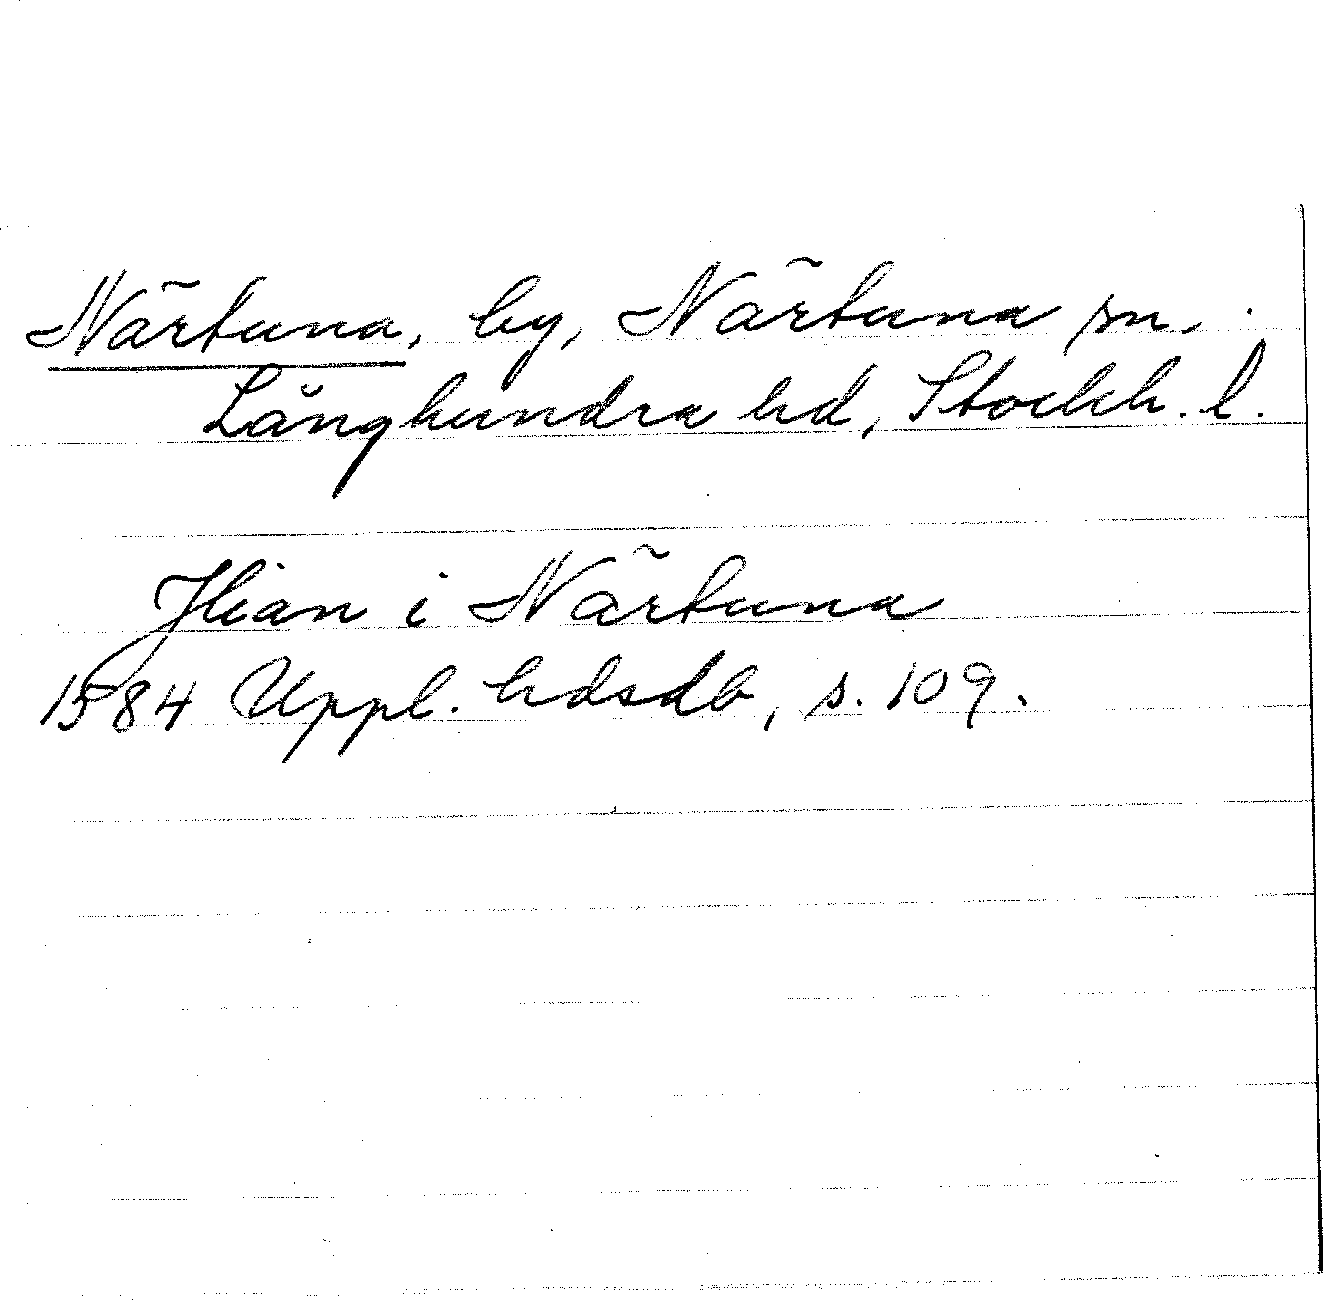 Närtuna, by, Närtuna sn.
Långhundra hd, Stockh. l.
Jlian i Närtuna
1584 Uppl. hdsdb, s. 109.